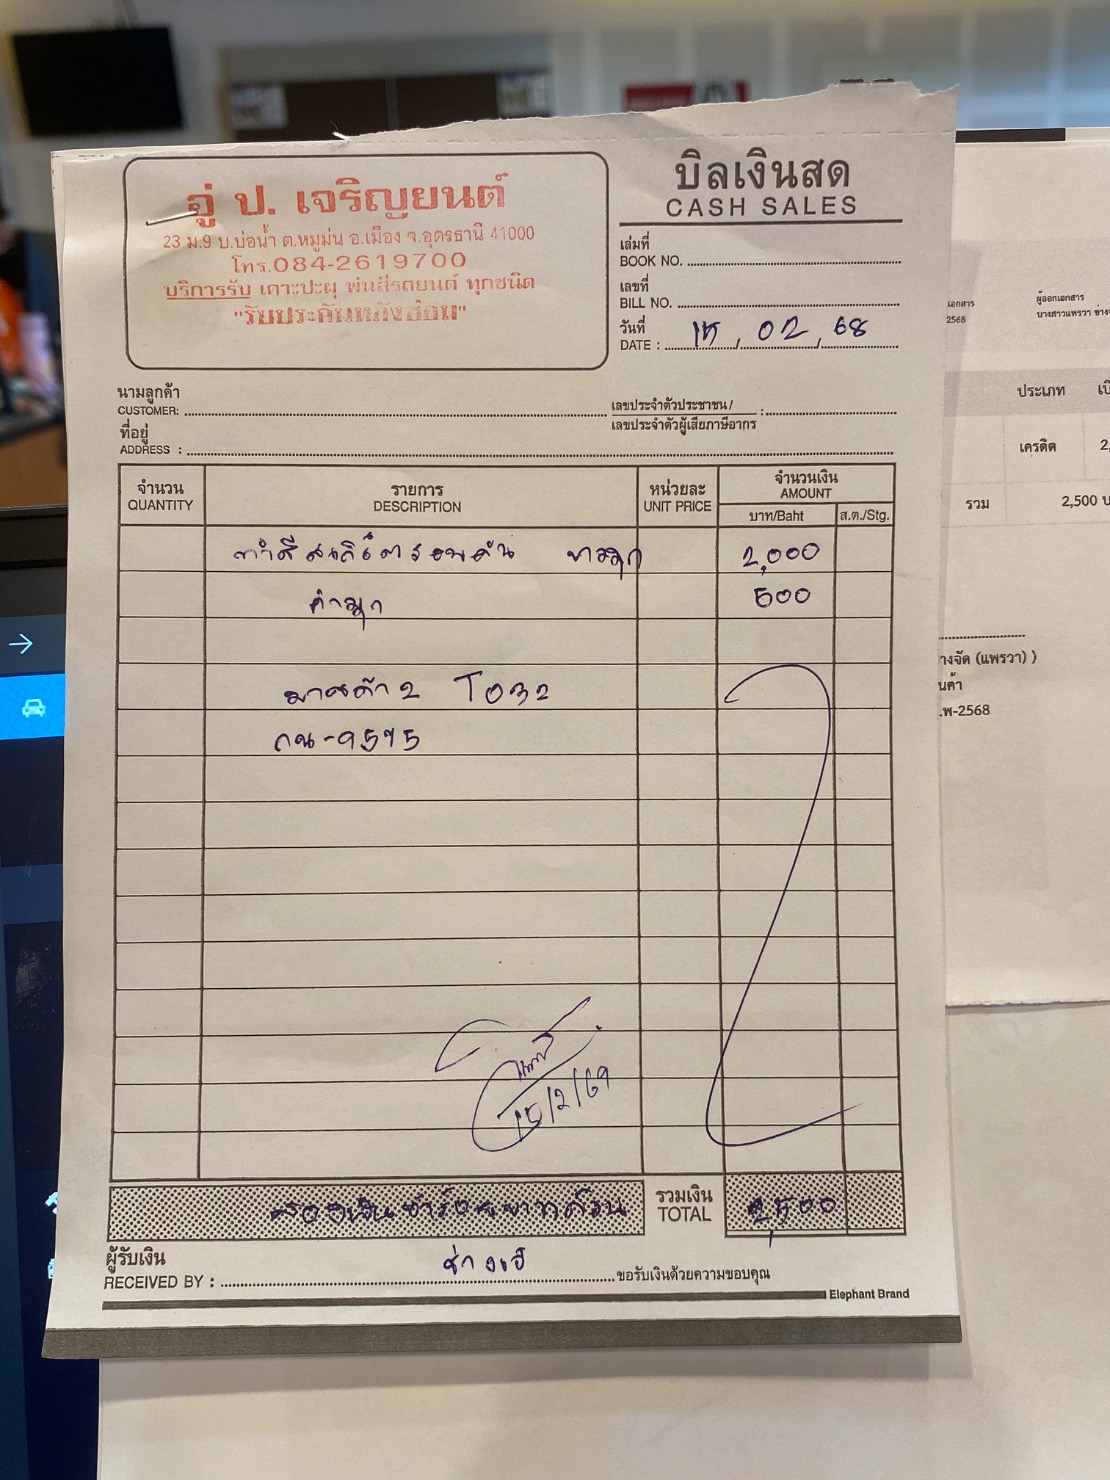 อู่ ป. เจริญยนต์
23 ม.9 บ.บ่อน้ำ ต.หมูม่น อ.เมือง จ.อุดรธานี 41000
โทร.084-2619700
บริการรับ เคาะปะผุ พ่นสีรถยนต์ ทุกชนิด
"รับประกันหลังซ่อม"
บิลเงินสด
CASH SALES
เล่มที่
BOOK NO.
เลขที่
BILL NO.
วันที่
DATE : 15, 02, 68
นามลูกค้า
CUSTOMER:
เลขประจำตัวประชาชน/
เลขประจำตัวผู้เสียภาษีอากร :
ที่อยู่
ADDRESS :
จำนวน
QUANTITY
รายการ
DESCRIPTION
หน่วยละ
UNIT PRICE
จำนวนเงิน
AMOUNT
บาท/Baht
ส.ต./Stg.
2,000
500
มาสด้า 2 T032
กน-9595
15/2/69
สองพันห้าร้อยบาทถ้วน
รวมเงิน
TOTAL
2,500
ผู้รับเงิน
RECEIVED BY :
ขอรับเงินด้วยความขอบคุณ
Elephant Brand
เอกสาร
2568
ผู้ออกเอกสาร
นางสาวแพรวา ช่าง
ประเภท
เครดิต
2,
รวม
2,500
างจัด (แพรวา) )
นค้า
.พ-2568